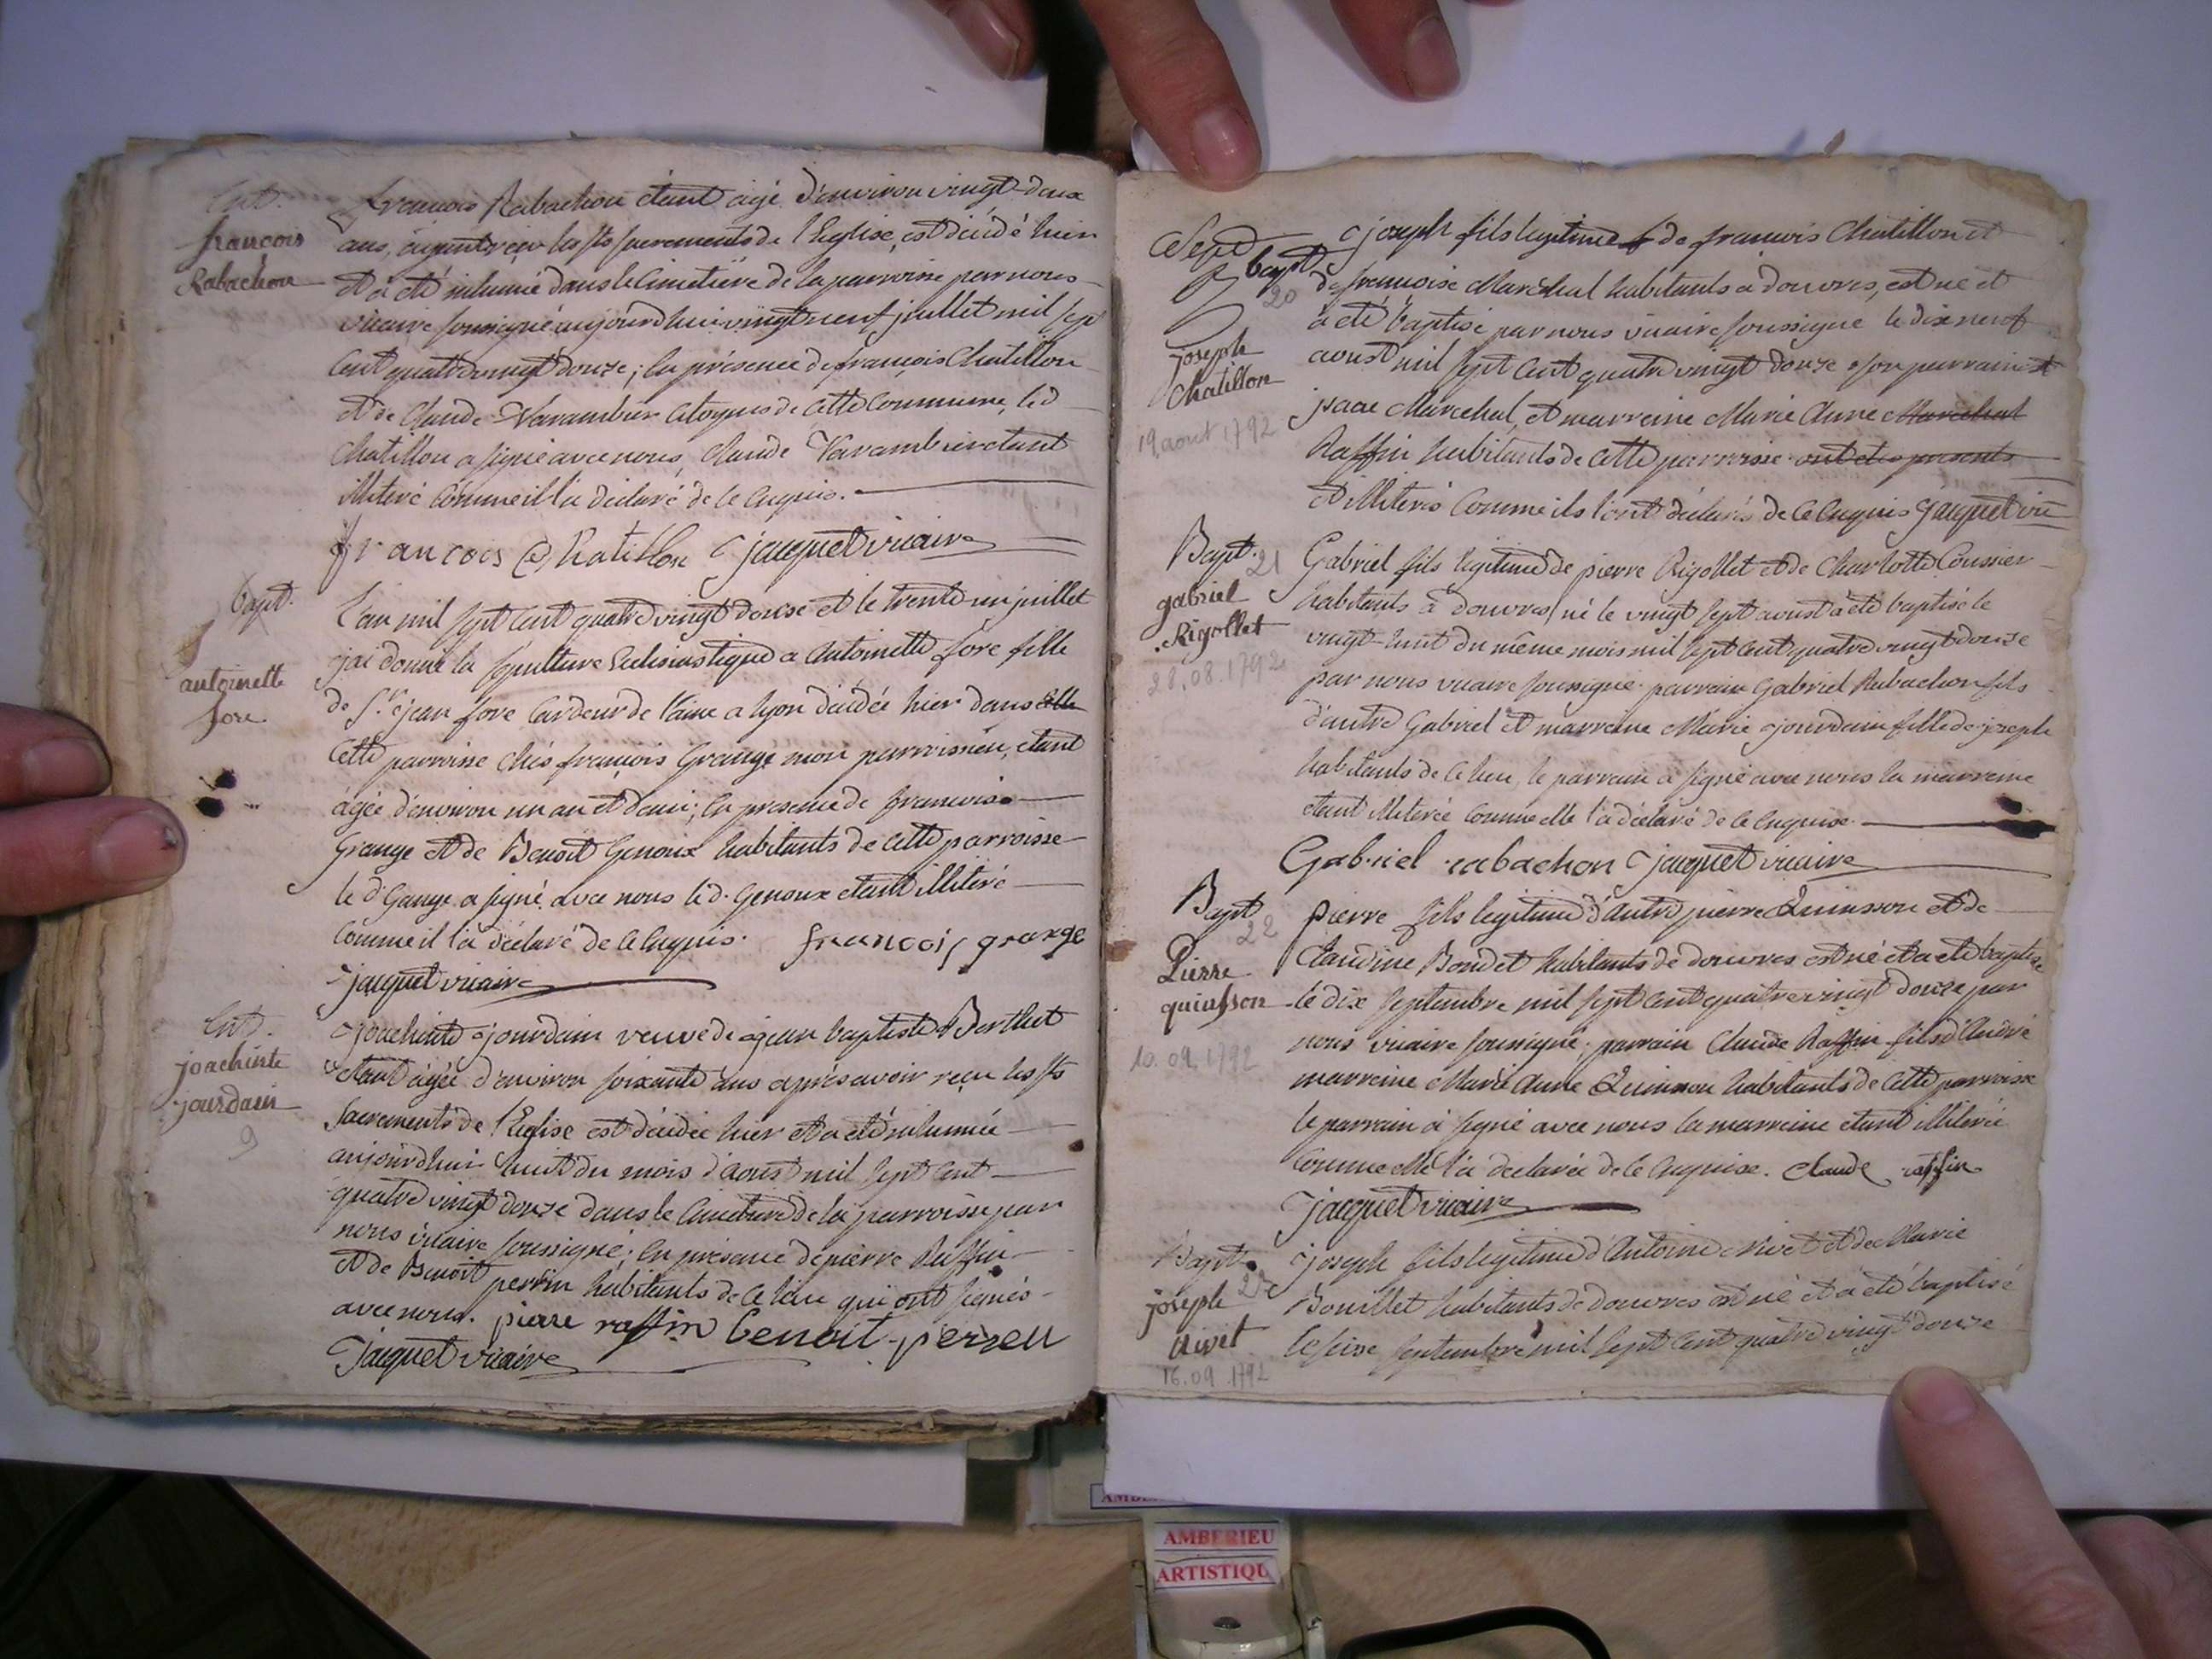 Ent.
francois
Rabachon
francois Rabachon étant agé d'environ vingt-deux
ans, ayant reçu les sts sacrements de l'Eglise, est décédé hier
et a eté inhumé dans le Cimetière de la parroisse par nous
vicaire soussigné aujourdhui vingt neuf juillet mil sept
cent quatre vingt douze; en présence de françois Chatillon
et de Claude Varambier citoyens de cette Commune, led
Chatillon a signé avec nous, Claude Varambier etant
illiteré comme il l'a déclaré de ce enquis.
francois Chatillon jacquet vicaire
bapt.
antoinette
fore
l'an mil sept cent quatre vingt douze et le trente un juillet
jai donné la sepulture Eclesiastique a Antoinette fore fille
de Sr jean fore Cardeur de laine a lyon décédée hier dans elle
cette parroisse chés françois Grange mon parroissien, etant
agée d'environ un an et demi; en presence de francois
Grange et de Benoit Genoux habitants de cette parroisse
le d Gange a signé avec nous le d. Genoux etant illiteré
comme il l'a déclaré de ce enquis. francois grange
jacquet vicaire
Ent.
joachinte
jourdain
9
joachinte jourdain veuve de jean baptiste Berthet
etant agée d'environ soixante ans après avoir reçu les sts
sacrements de l'Eglise est décédée hier et a eté inhumée
aujourdhui huit du mois d'aoust mil sept cent
quatre vingt douze dans le Cimetière de la parroisse par
nous vicaire soussigné; en présence de pierre Raffin
et de Benoit perrin habitants de ce lieu qui ont signés
avec nous. pierre raffin benoit perren
Jacquet vicaire
bapt
20
joseph
Chatillon
19 aout 1792
joseph fils legitime de francois Chatillon et
de francoise Maréchal habitants a douvres, est né et
a eté baptisé par nous vicaire soussigné le dix neuf
aoust mil sept cent quatre vingt douze son parrain et
isaac Marechal, et marreine Marie Anne Marechal
Raffin habitants de cette parroisse ont etes presents
et illiterés comme ils l'ont déclarés de ce enquis jacquet vic
Bapt. 21
gabriel
Rigollet
28.08.1792
Gabriel fils legitime de pierre Rigollet et de Charlotte Cousier
habitants a douvres, né le vingt sept aoust a eté baptisé le
vingt-huit du même mois mil sept cent quatre vingt douze
par nous vicaire soussigné parrain Gabriel Rabachon fils
d'autre Gabriel et marreine Marie jourdain fille de joseph
habitants de ce lieu, le parrain a signé avec nous la marreine
etant illiterée comme elle l'a déclaré de ce enquise.
Gabriel rabachon jacquet vicaire
Bapt
22
Pierre
quinsson
10.09.1792
pierre fils legitime d'autre pierre Quinsson et de
Claudine Bondet habitants de douvres est né et a eté baptisé
le dix septembre mil sept cent quatre vingt douze par
nous vicaire soussigné; parrain Claude Raffin fils d'André
marreine Marie Anne Quinson habitants de cette parroisse
le parrain a signé avec nous la marreine etant illiterée
comme elle l'a declarée de ce enquise. Claude raffin
jacquet vicaire
Bapt.
joseph 23
nivet
16.09.1792
joseph fils legitime d'Antoine Nivet et de Marie
Bouillet habitants de douvres est né et a eté baptisé
le seise septembre mil sept cent quatre vingt douze
AMBERIEU
ARTISTIQU